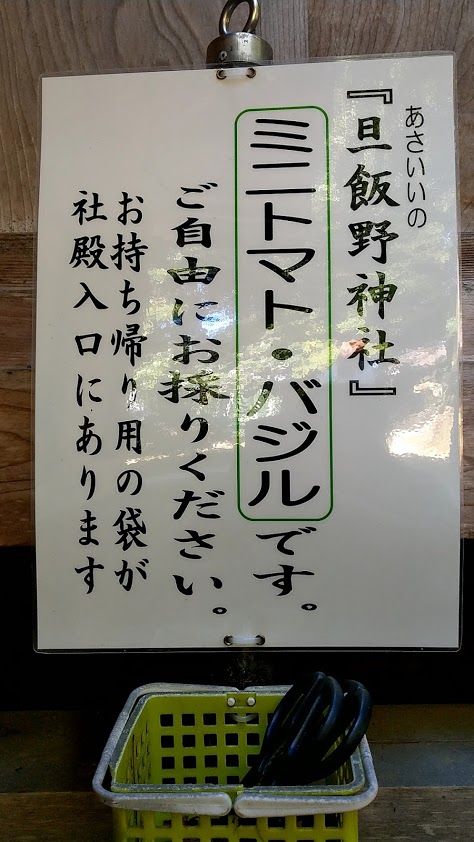 あさいいの
『旦飯野神社』
ミニトマト・バジルです。
ご自由にお採りください。
お持ち帰り用の袋が
社殿入口にあります